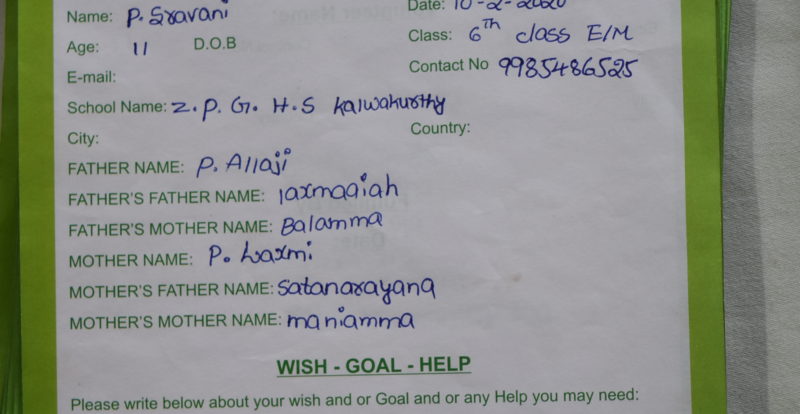 Name: P. Sravani
Date: 10-2-2020
Age: 11 D.O.B
Class: 6th class E/M
E-mail:
Contact No 9985486525
School Name: Z.P.G.H.S kalwakurthy
City: Country:
FATHER NAME: P. Allaji
FATHER'S FATHER NAME: laxmaaiah
FATHER'S MOTHER NAME: Balamma
MOTHER NAME: P. Laxmi
MOTHER'S FATHER NAME: Satanarayana
MOTHER'S MOTHER NAME: maniamma
WISH - GOAL - HELP
Please write below about your wish and or Goal and or any Help you may need: